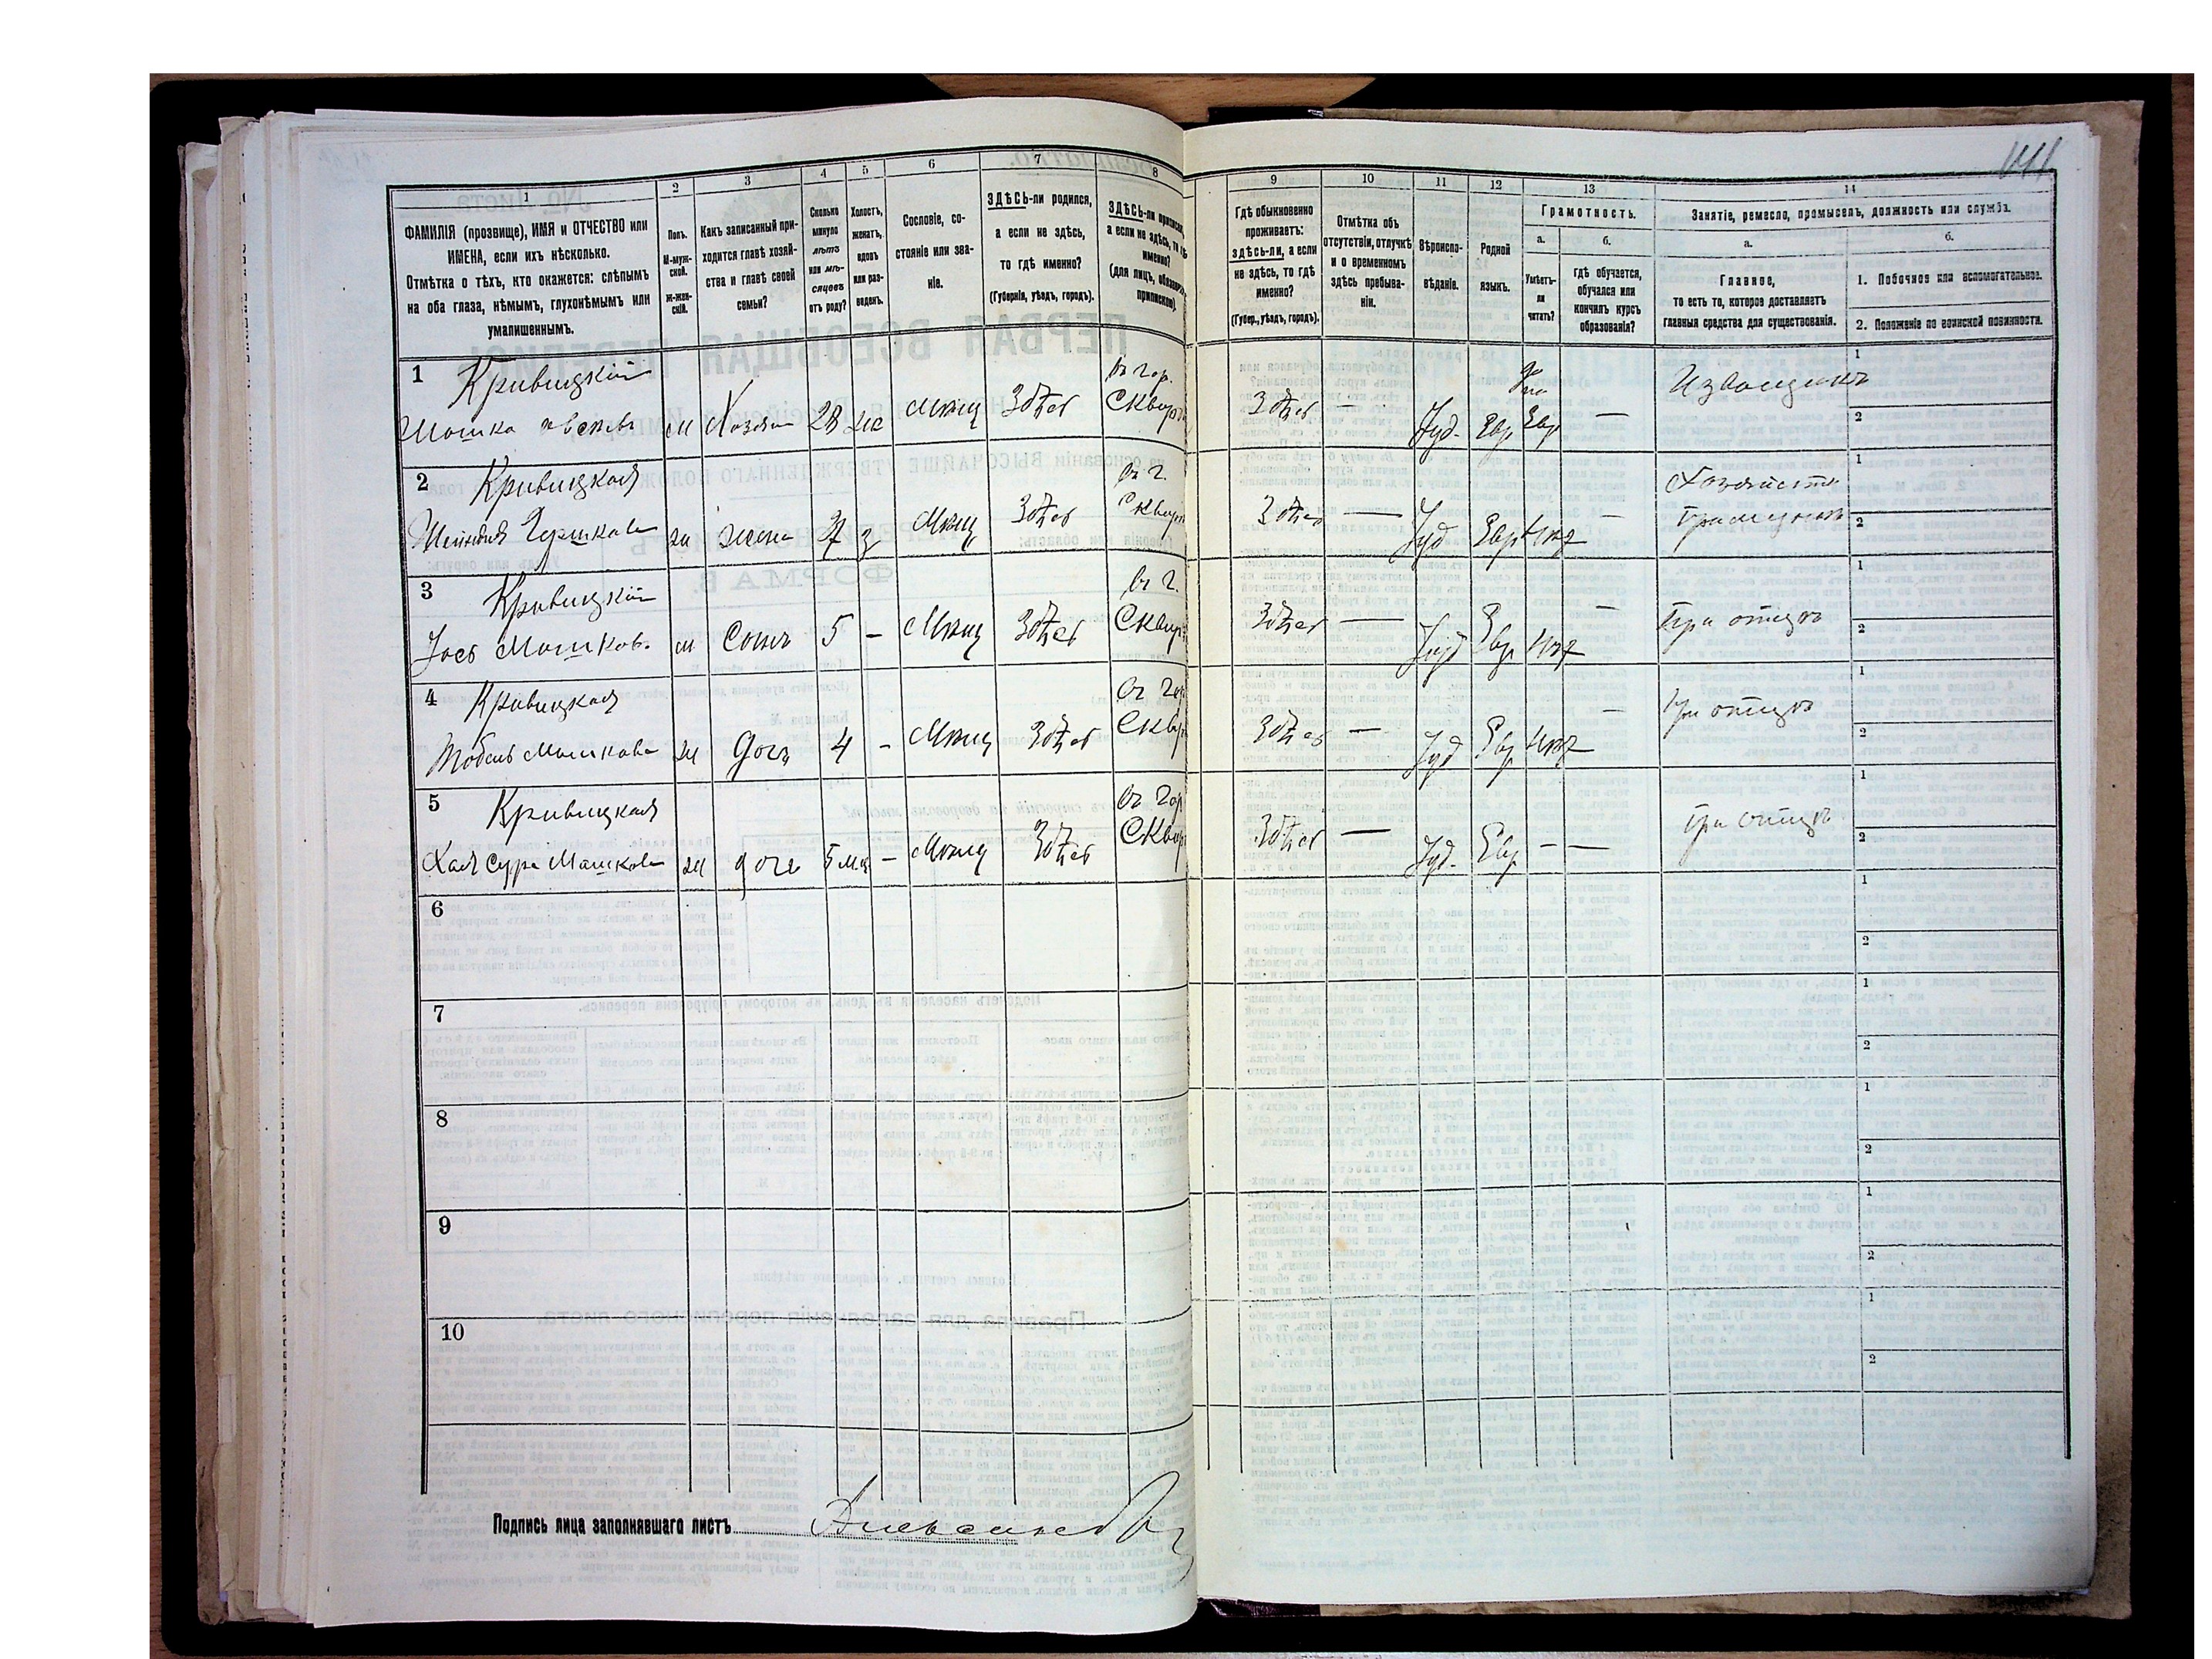 1 2 3 4 5 6 7 8 9 10 11 12 13 14
ФАМИЛІЯ (прозвище), ИМЯ и ОТЧЕСТВО или
ИМЕНА, если ихъ нѣсколько.
Отмѣтка о тѣхъ, кто окажется: слѣпымъ
на оба глаза, нѣмымъ, глухонѣмымъ или
умалишеннымъ.
Полъ.
М-муж-
ской.
ж-жен-
скій.
Какъ записанный при-
ходится главѣ хозяй-
ства и главѣ своей
семьи?
Сколько
минуло
лѣтъ
или мѣ-
сяцевъ
отъ роду?
Холостъ,
женатъ,
вдовъ
или раз-
веденъ.
Сословіе, со-
стояніе или зва-
ніе.
ЗДѢСЬ-ли родился,
а если не здѣсь,
то гдѣ именно?
(Губернія, уѣздъ, городъ).
ЗДѢСЬ-ли
а если не здѣсь, то гдѣ
именно?
(для лицъ,
припискою).
Гдѣ обыкновенно
проживаетъ:
здѣсь-ли, а если
не здѣсь, то гдѣ
именно?
(Губер., уѣздъ, городъ).
Отмѣтка объ
отсутствіи, отлучкѣ
и о временномъ
здѣсь пребыва-
ніи.
Вѣроиспо-
вѣданіе.
Родной
языкъ.
Грамотность.
а. б.
Умѣетъ-
ли
читать?
гдѣ обучается,
обучался или
кончилъ курсъ
образованія?
Занятіе, ремесло, промыселъ, должность или служба.
а. б.
Главное,
то есть то, которое доставляетъ
главныя средства для существованія.
1. Побочное или вспомогательное.
2. Положеніе по воинской повинности.
1 Кривицкій въ гор. да 1
Мошко м Хозяинъ 28 же Мѣщ Здѣсь Сквир Здѣсь — Іуд. Евр Евр — Извощикъ 2
2 Кривицкая въ г. 1
Шейндля Гершкова ж жена 27 з Мѣщ Здѣсь Сквир Здѣсь — Іуд Евр Нѣт — 2
3 Кривицкій въ г. 1
Іось Мошков. м Сынъ 5 — Мѣщ Здѣсь Сквир Здѣсь — Іуд Евр Нѣт — При отцѣ 2
4 Кривицкая въ гор 1
Мошкова ж дочь 4 — Мѣщ Здѣсь Сквир Здѣсь — Іуд Евр Нѣт — При отцѣ 2
5 Кривицкая въ гор 1
Хая Сура Мошкова ж дочь 5 м.ц — Мѣщ Здѣсь Сквир Здѣсь — Іуд. Евр — — При отцѣ 2
6 1
2
7 1
2
8 1
2
9 1
2
10 1
2
Подпись лица заполнявшаго листъ